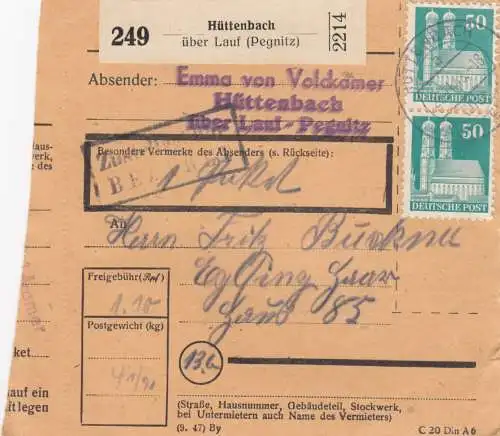 249
Hüttenbach
über Lauf (Pegnitz)
2214
50
DEUTSCHE POST
50
DEUTSCHE POST
Absender: Emma von Volckamer
Hüttenbach
über Lauf - Pegnitz
Besondere Vermerke des Absenders (s. Rückseite):
1 Paket
An
Herrn Fritz Buckna
Eglfing Haar
Haus 85
Freigebühr (Rpf)
1.10
Postgewicht (kg)
13b
ket
auf ein
ft legen
(Straße, Hausnummer, Gebäudeteil, Stockwerk,
bei Untermietern auch Name des Vermieters)
(9. 47) By
C 20 Din A 6